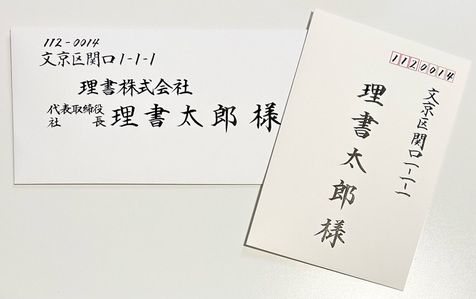 112-0014
文京区関口1-1-1
理書株式会社
代表取締役
社長 理書太郎様
1120014
文京区関口一-一-一
理書太郎様